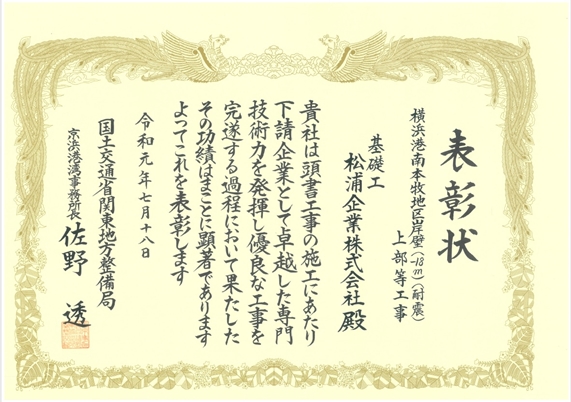 表彰状
横浜港南本牧地区岸壁(-18m)(耐震)
上部等工事
基礎工
松浦企業株式会社殿
貴社は頭書工事の施工にあたり
下請企業として卓越した専門
技術力を発揮し優良な工事を
完遂する過程において果たした
その功績はまことに顕著であります
よってこれを表彰します
令和元年七月十八日
国土交通省関東地方整備局
京浜港湾事務所長 佐野 透